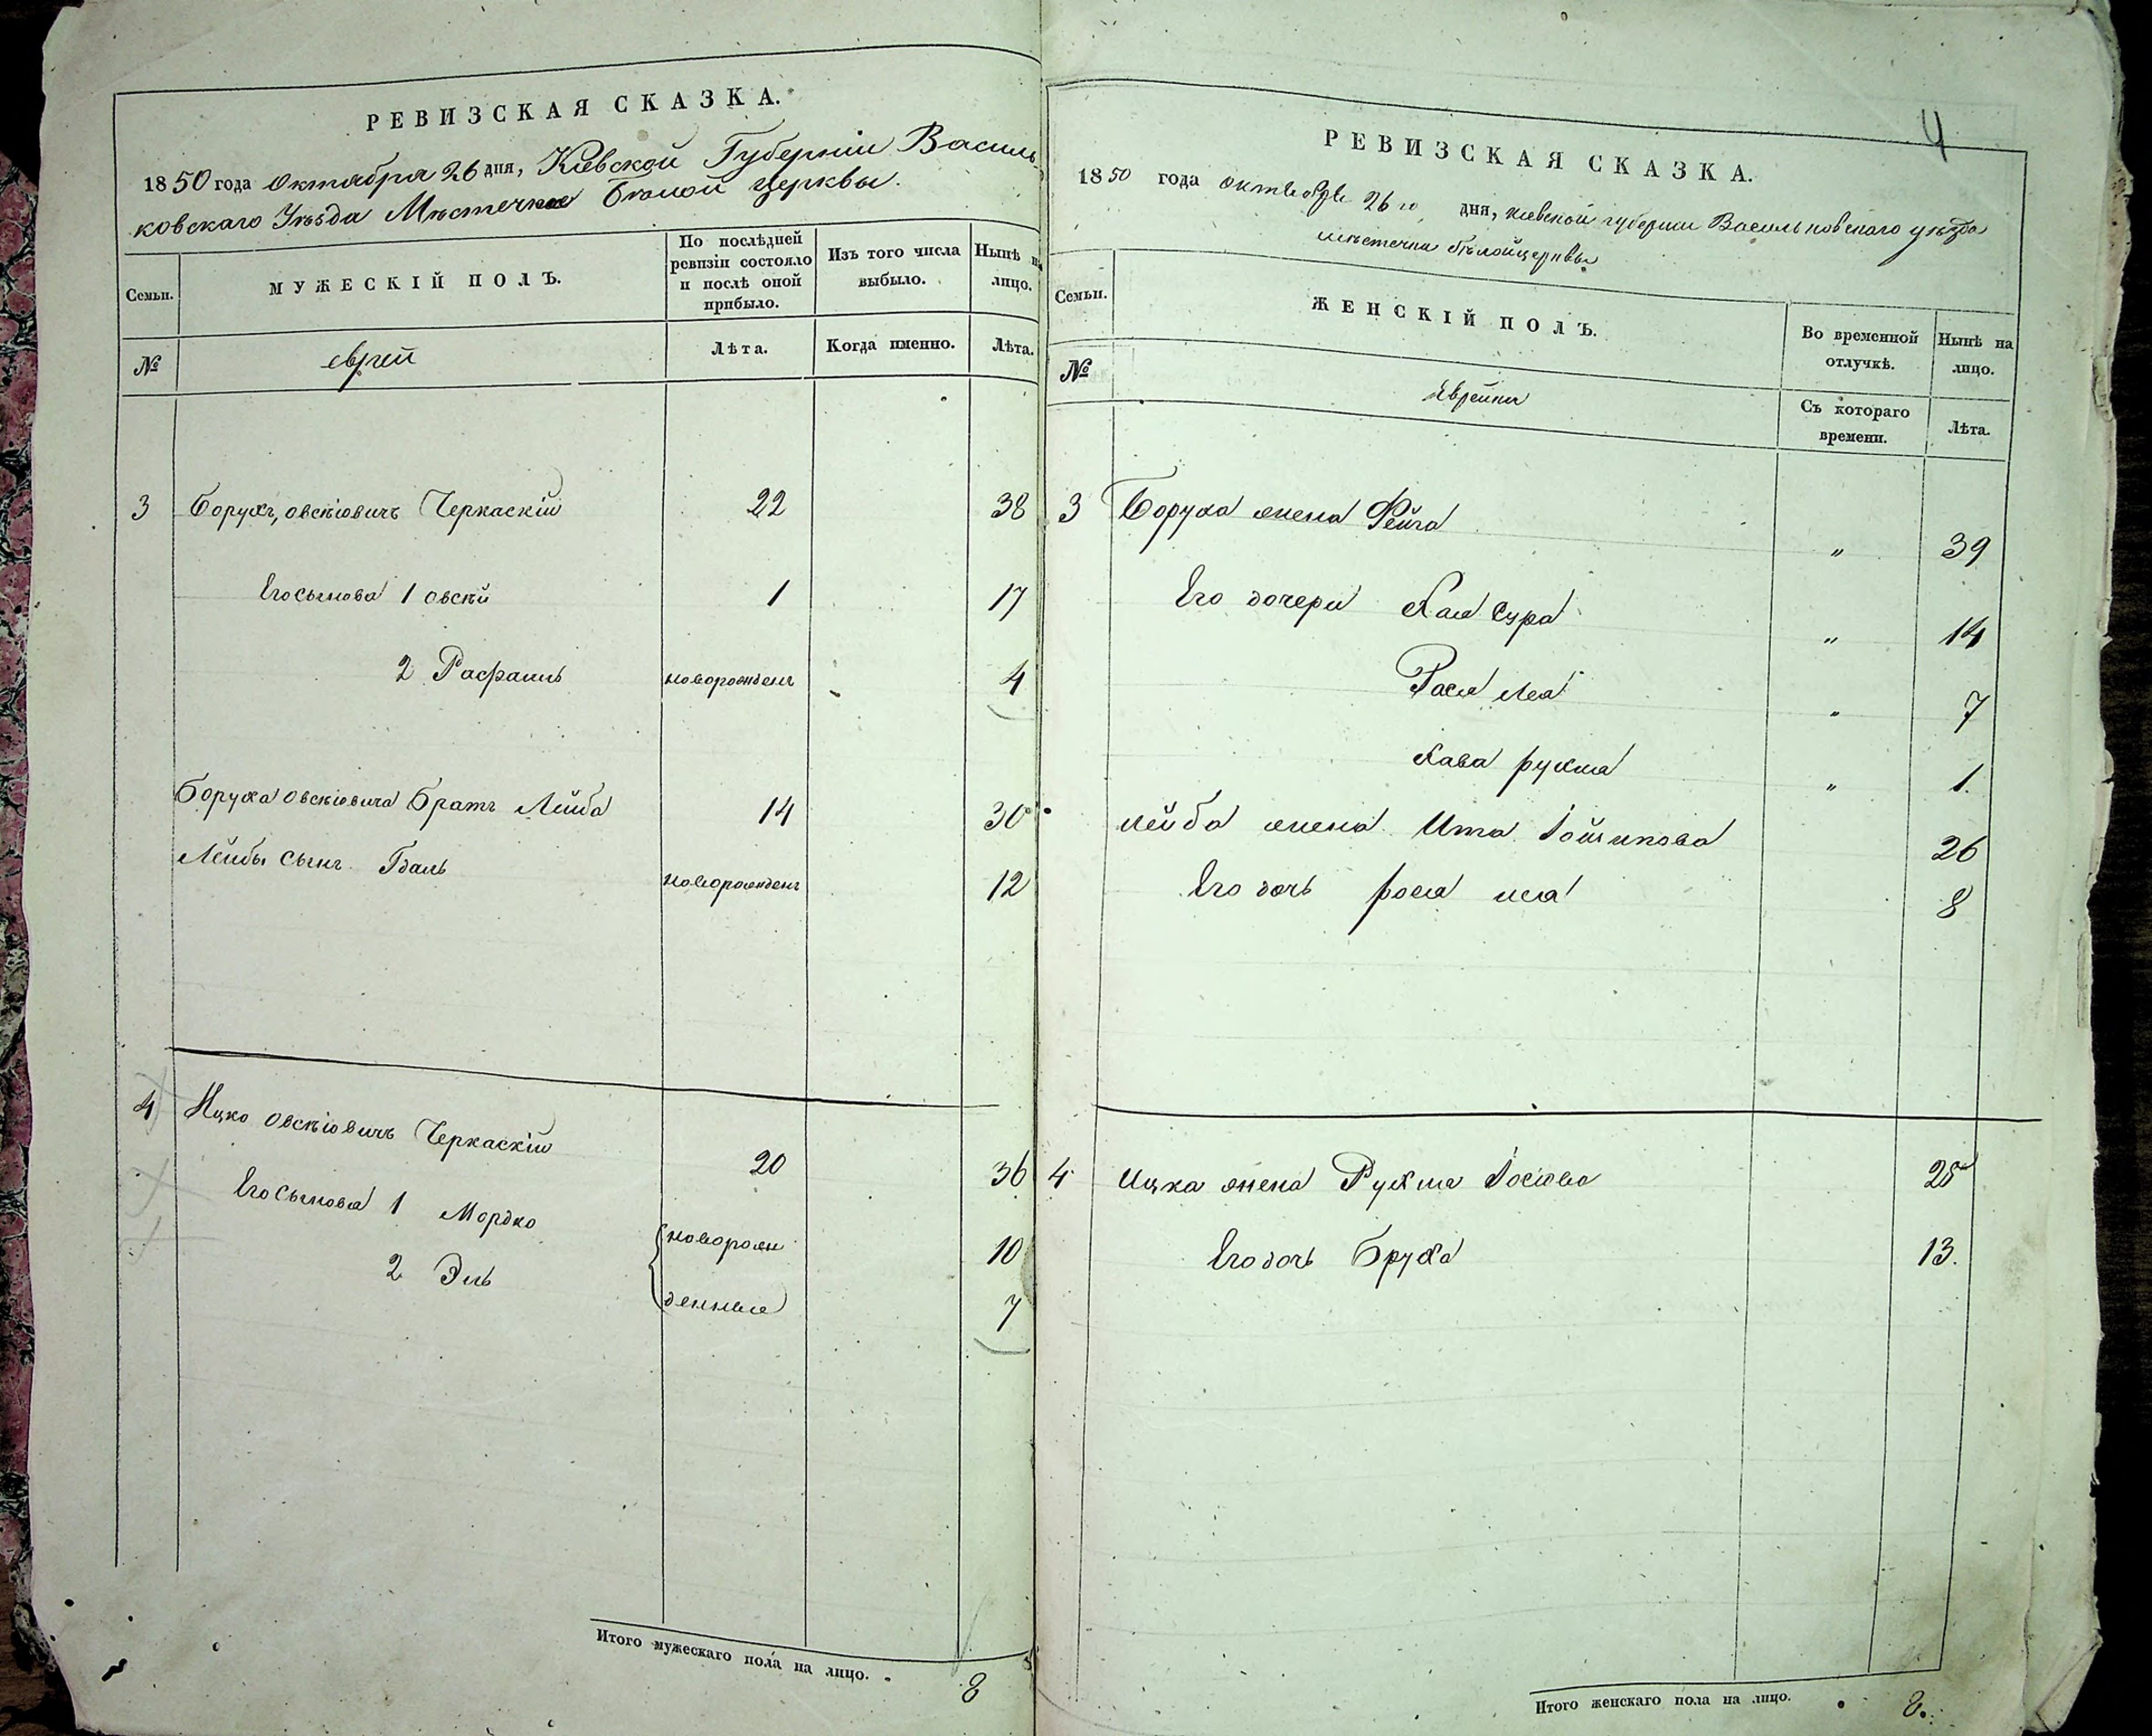 РЕВИЗСКАЯ СКАЗКА.
1850 года октября 26 дня, Кіевской Губерніи Василь
ковскаго Уѣзда Мѣстечка Бѣлой Церквы.
Семьи.
МУЖЕСКІЙ ПОЛЪ.
По послѣдней
ревизіи состояло
и послѣ оной
прибыло.
Изъ того числа
выбыло.
Нынѣ на
лицо.
№
еврей
Лѣта.
Когда именно.
Лѣта.
3 Борухъ, овсѣіовичъ Черкаскій 22 38
Его сыновья 1 овсѣй 1 17
2 Рафаиль новорожденъ 4
Боруха овсѣіовича Братъ Лейба 14 30
Лейбы сынъ Гдаль новорожденъ 12
4 Ицко овсѣіовичъ Черкаскій 20 36
Его сыновья 1 Мордко новорож 10
2 Эль денные 7
Итого мужескаго пола на лицо. 8
4
РЕВИЗСКАЯ СКАЗКА.
1850 года октября 26го дня, кіевской губерніи Васильковскаго уѣзда
мѣстечки бѣлойцерквы
Семьи.
ЖЕНСКІЙ ПОЛЪ.
Во временной
отлучкѣ.
Нынѣ на
лицо.
№
Еврейки
Съ котораго
времени.
Лѣта.
3 Боруха жена Фейга " 39
Его дочери Хая Сура " 14
Рася лея " 7
Хава рухля " 1.
лейба жена Ита 26
Его дочь рося 8
4 ицка жена Рухля 28
Его дочь Бруха 13.
Итого женскаго пола на лицо. 8.